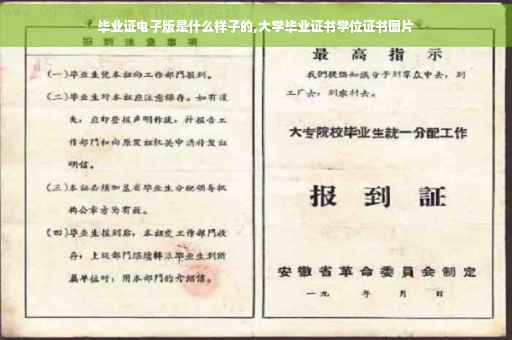 毕业证电子版是什么样子的,大学毕业证书学位证书图片
报到注意事项
(一)毕业生凭本证向工作部门报到。
(二)毕业生对本证应注意保存。如有遗
失,应即登报声明作废,并报告工
作部门和向原发证机关申请补发证
明信。
(三)本证必须加盖省毕业生分配领导机
构公章方为有效。
(四)毕业生报到后,本证交工作部门收
存;上级部门继续转派毕业生到所
属单位时,用本部门的介绍信。
最高指示
我们提倡知识分子到群众中去,到
工厂去,到农村去。
大专院校毕业生統一分配工作
报到証
安徽省革命委員会制定
一九 年 月 日